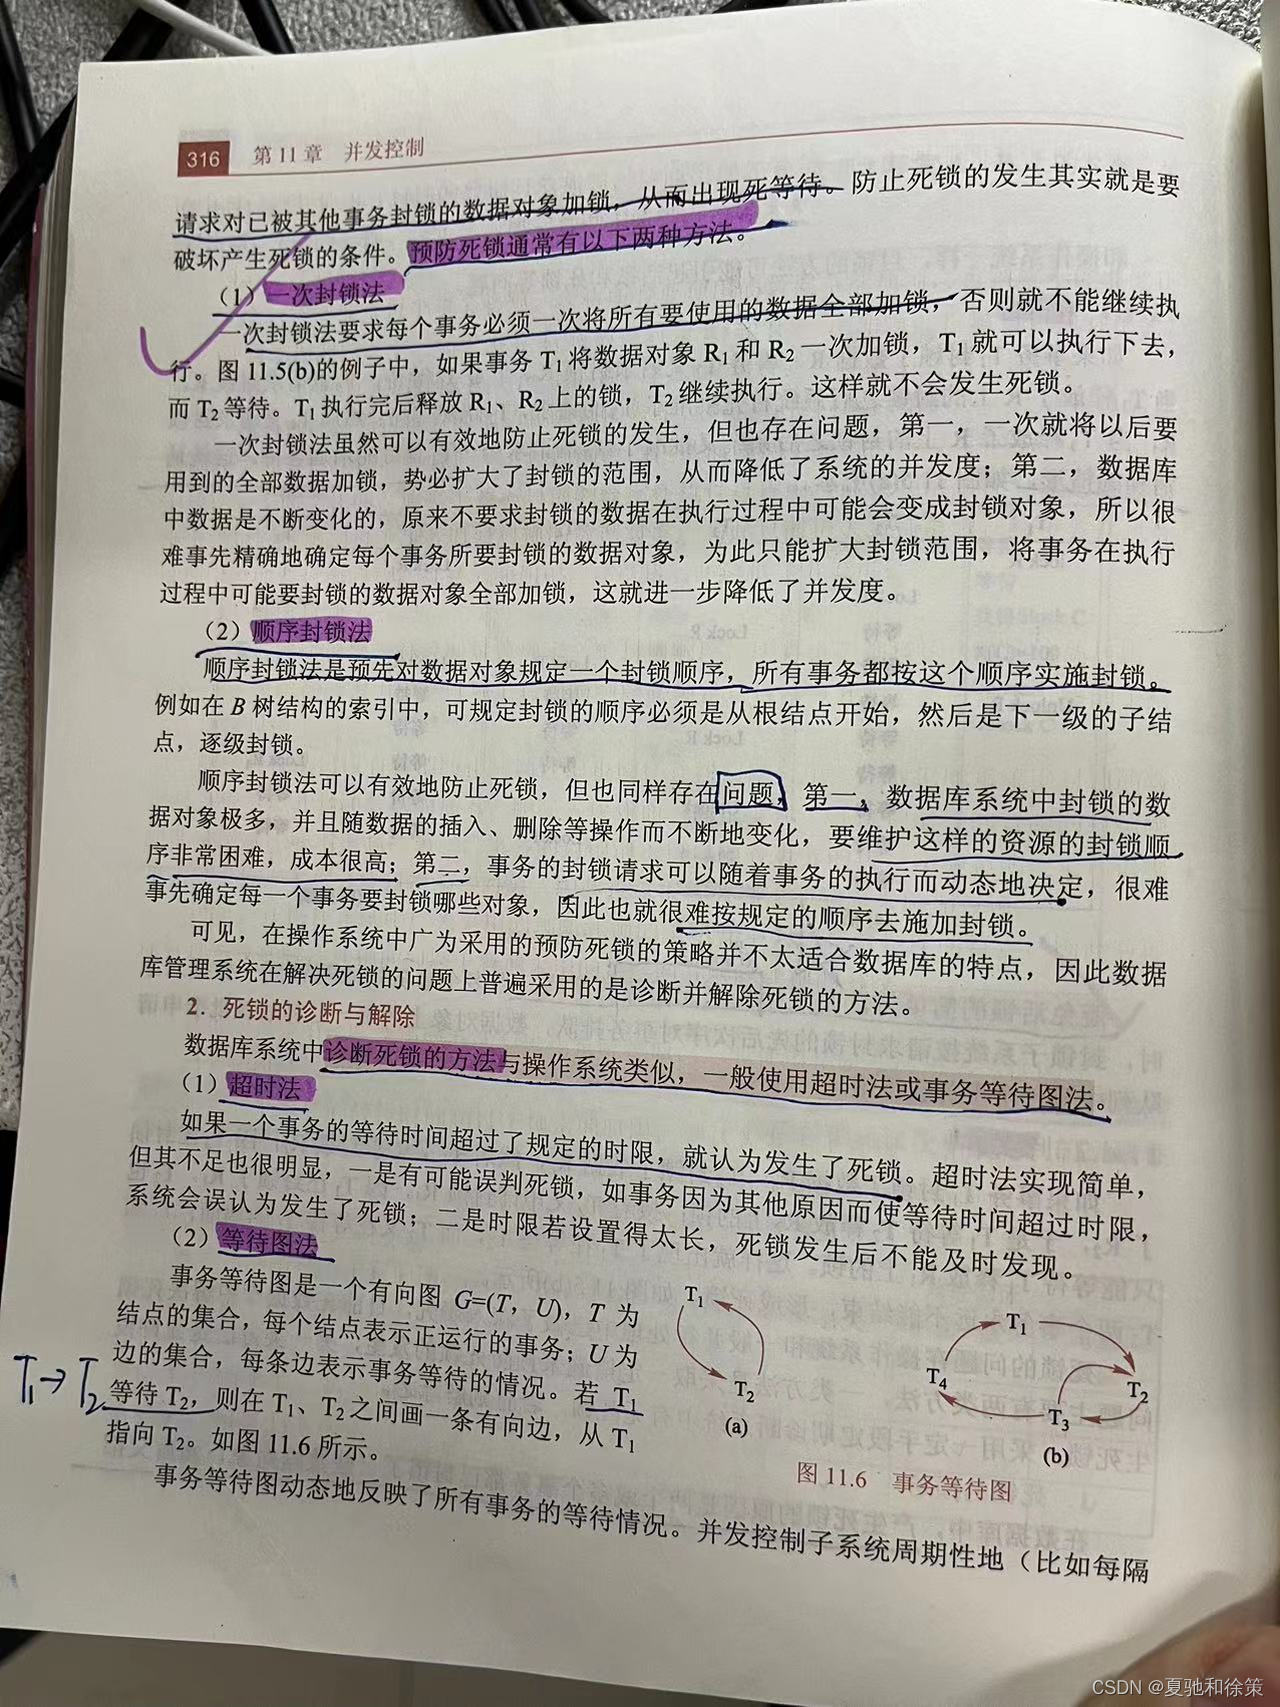 316 第 11 章 并发控制
请求对已被其他事务封锁的数据对象加锁，从而出现死等待。防止死锁的发生其实就是要
破坏产生死锁的条件。预防死锁通常有以下两种方法。
（1）一次封锁法
一次封锁法要求每个事务必须一次将所有要使用的数据全部加锁，否则就不能继续执
行。图 11.5(b)的例子中，如果事务 T₁ 将数据对象 R₁ 和 R₂ 一次加锁，T₁ 就可以执行下去，
而 T₂ 等待。T₁ 执行完后释放 R₁、R₂ 上的锁，T₂ 继续执行。这样就不会发生死锁。
一次封锁法虽然可以有效地防止死锁的发生，但也存在问题，第一，一次就将以后要
用到的全部数据加锁，势必扩大了封锁的范围，从而降低了系统的并发度；第二，数据库
中数据是不断变化的，原来不要求封锁的数据在执行过程中可能会变成封锁对象，所以很
难事先精确地确定每个事务所要封锁的数据对象，为此只能扩大封锁范围，将事务在执行
过程中可能要封锁的数据对象全部加锁，这就进一步降低了并发度。
（2）顺序封锁法
顺序封锁法是预先对数据对象规定一个封锁顺序，所有事务都按这个顺序实施封锁。
例如在 B 树结构的索引中，可规定封锁的顺序必须是从根结点开始，然后是下一级的子结
点，逐级封锁。
顺序封锁法可以有效地防止死锁，但也同样存在问题，第一，数据库系统中封锁的数
据对象极多，并且随数据的插入、删除等操作而不断地变化，要维护这样的资源的封锁顺
序非常困难，成本很高；第二，事务的封锁请求可以随着事务的执行而动态地决定，很难
事先确定每一个事务要封锁哪些对象，因此也就很难按规定的顺序去施加封锁。
可见，在操作系统中广为采用的预防死锁的策略并不太适合数据库的特点，因此数据
库管理系统在解决死锁的问题上普遍采用的是诊断并解除死锁的方法。
2．死锁的诊断与解除
数据库系统中诊断死锁的方法与操作系统类似，一般使用超时法或事务等待图法。
（1）超时法
如果一个事务的等待时间超过了规定的时限，就认为发生了死锁。超时法实现简单，
但其不足也很明显，一是有可能误判死锁，如事务因为其他原因而使等待时间超过时限，
系统会误认为发生了死锁；二是时限若设置得太长，死锁发生后不能及时发现。
（2）等待图法
事务等待图是一个有向图 G=(T，U)，T 为
结点的集合，每个结点表示正运行的事务；U 为
边的集合，每条边表示事务等待的情况。若 T₁
等待 T₂，则在 T₁、T₂ 之间画一条有向边，从 T₁
指向 T₂。如图 11.6 所示。
T₁→T₂
T₁
T₂
(a)
T₁
T₄
T₂
T₃
(b)
图 11.6 事务等待图
事务等待图动态地反映了所有事务的等待情况。并发控制子系统周期性地（比如每隔
CSDN @夏驰和徐策